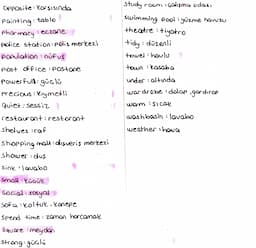 opposite: karşısında
painting: tablo
pharmacy: eczane
police station: polis merkezi
population: nüfus
post office: postane
powerful: güçlü
precious: kıymetli
quiet: sessiz
restaurant: restorant
shelves: raf
shopping mall: alışveriş merkezi
shower: duş
sink: lavabo
small: küçük
social: sosyal
sofa: koltuk: kanepe
spend time: zaman harcamak
square: meydan
strong: güçlü
study room: çalışma odası
swimming pool: yüzme havuzu
theatre: tiyatro
tidy: düzenli
towel: havlu
town: kasaba
under: altında
wardrobe: dolap gardırop
warm: sıcak
washbasin: lavabo
weather: hava